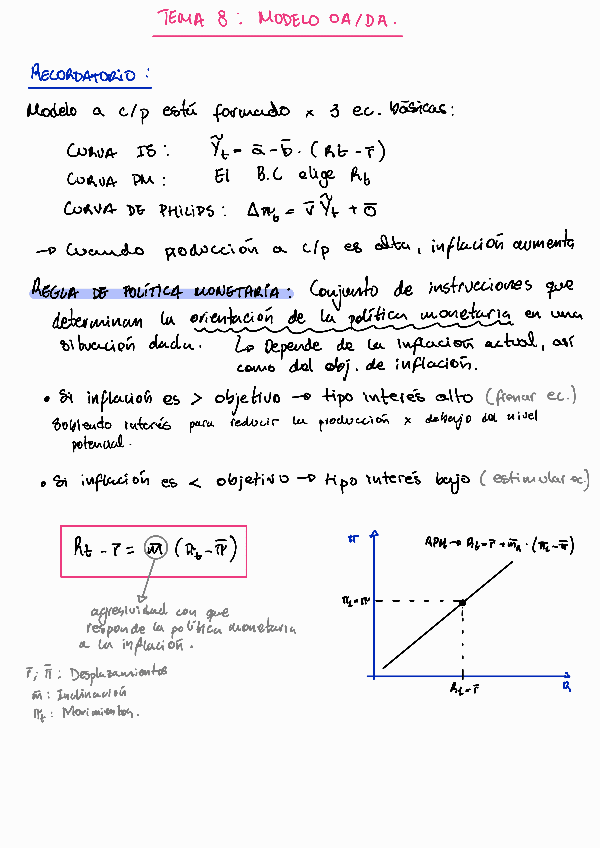 TEMA 8: MODELO OA/DA.
RECORDATORIO:
Modelo a c/p está formado x 3 ec. básicas:
CURVA IS: Ỹt = ā - b̄ · (Rt - r̄)
CURVA PM: El B.C elige Rt
CURVA DE PHILIPS: Δπt = v̄ Ỹt + ō
→ Cuando producción a c/p es alta, inflación aumenta
REGLA DE POLÍTICA MONETARIA: Conjunto de instrucciones que
determinan la orientación de la política monetaria en una
situación dada. ↳ Depende de la inflación actual, así
como del obj. de inflación.
• Si inflación es > objetivo → tipo interés alto (frenar ec.)
Subiendo interés para reducir la producción x debajo del nivel
potencial.
• Si inflación es < objetivo → tipo interés bajo (estimular ec.)
Rt - r̄ = m̄ (πt - π̄)
agresividad con que
responde la política monetaria
a la inflación.
r̄; π̄: Desplazamientos
m̄: Inclinación
πt: Movimientos.
π
πt = π̄
Rt = r̄
R